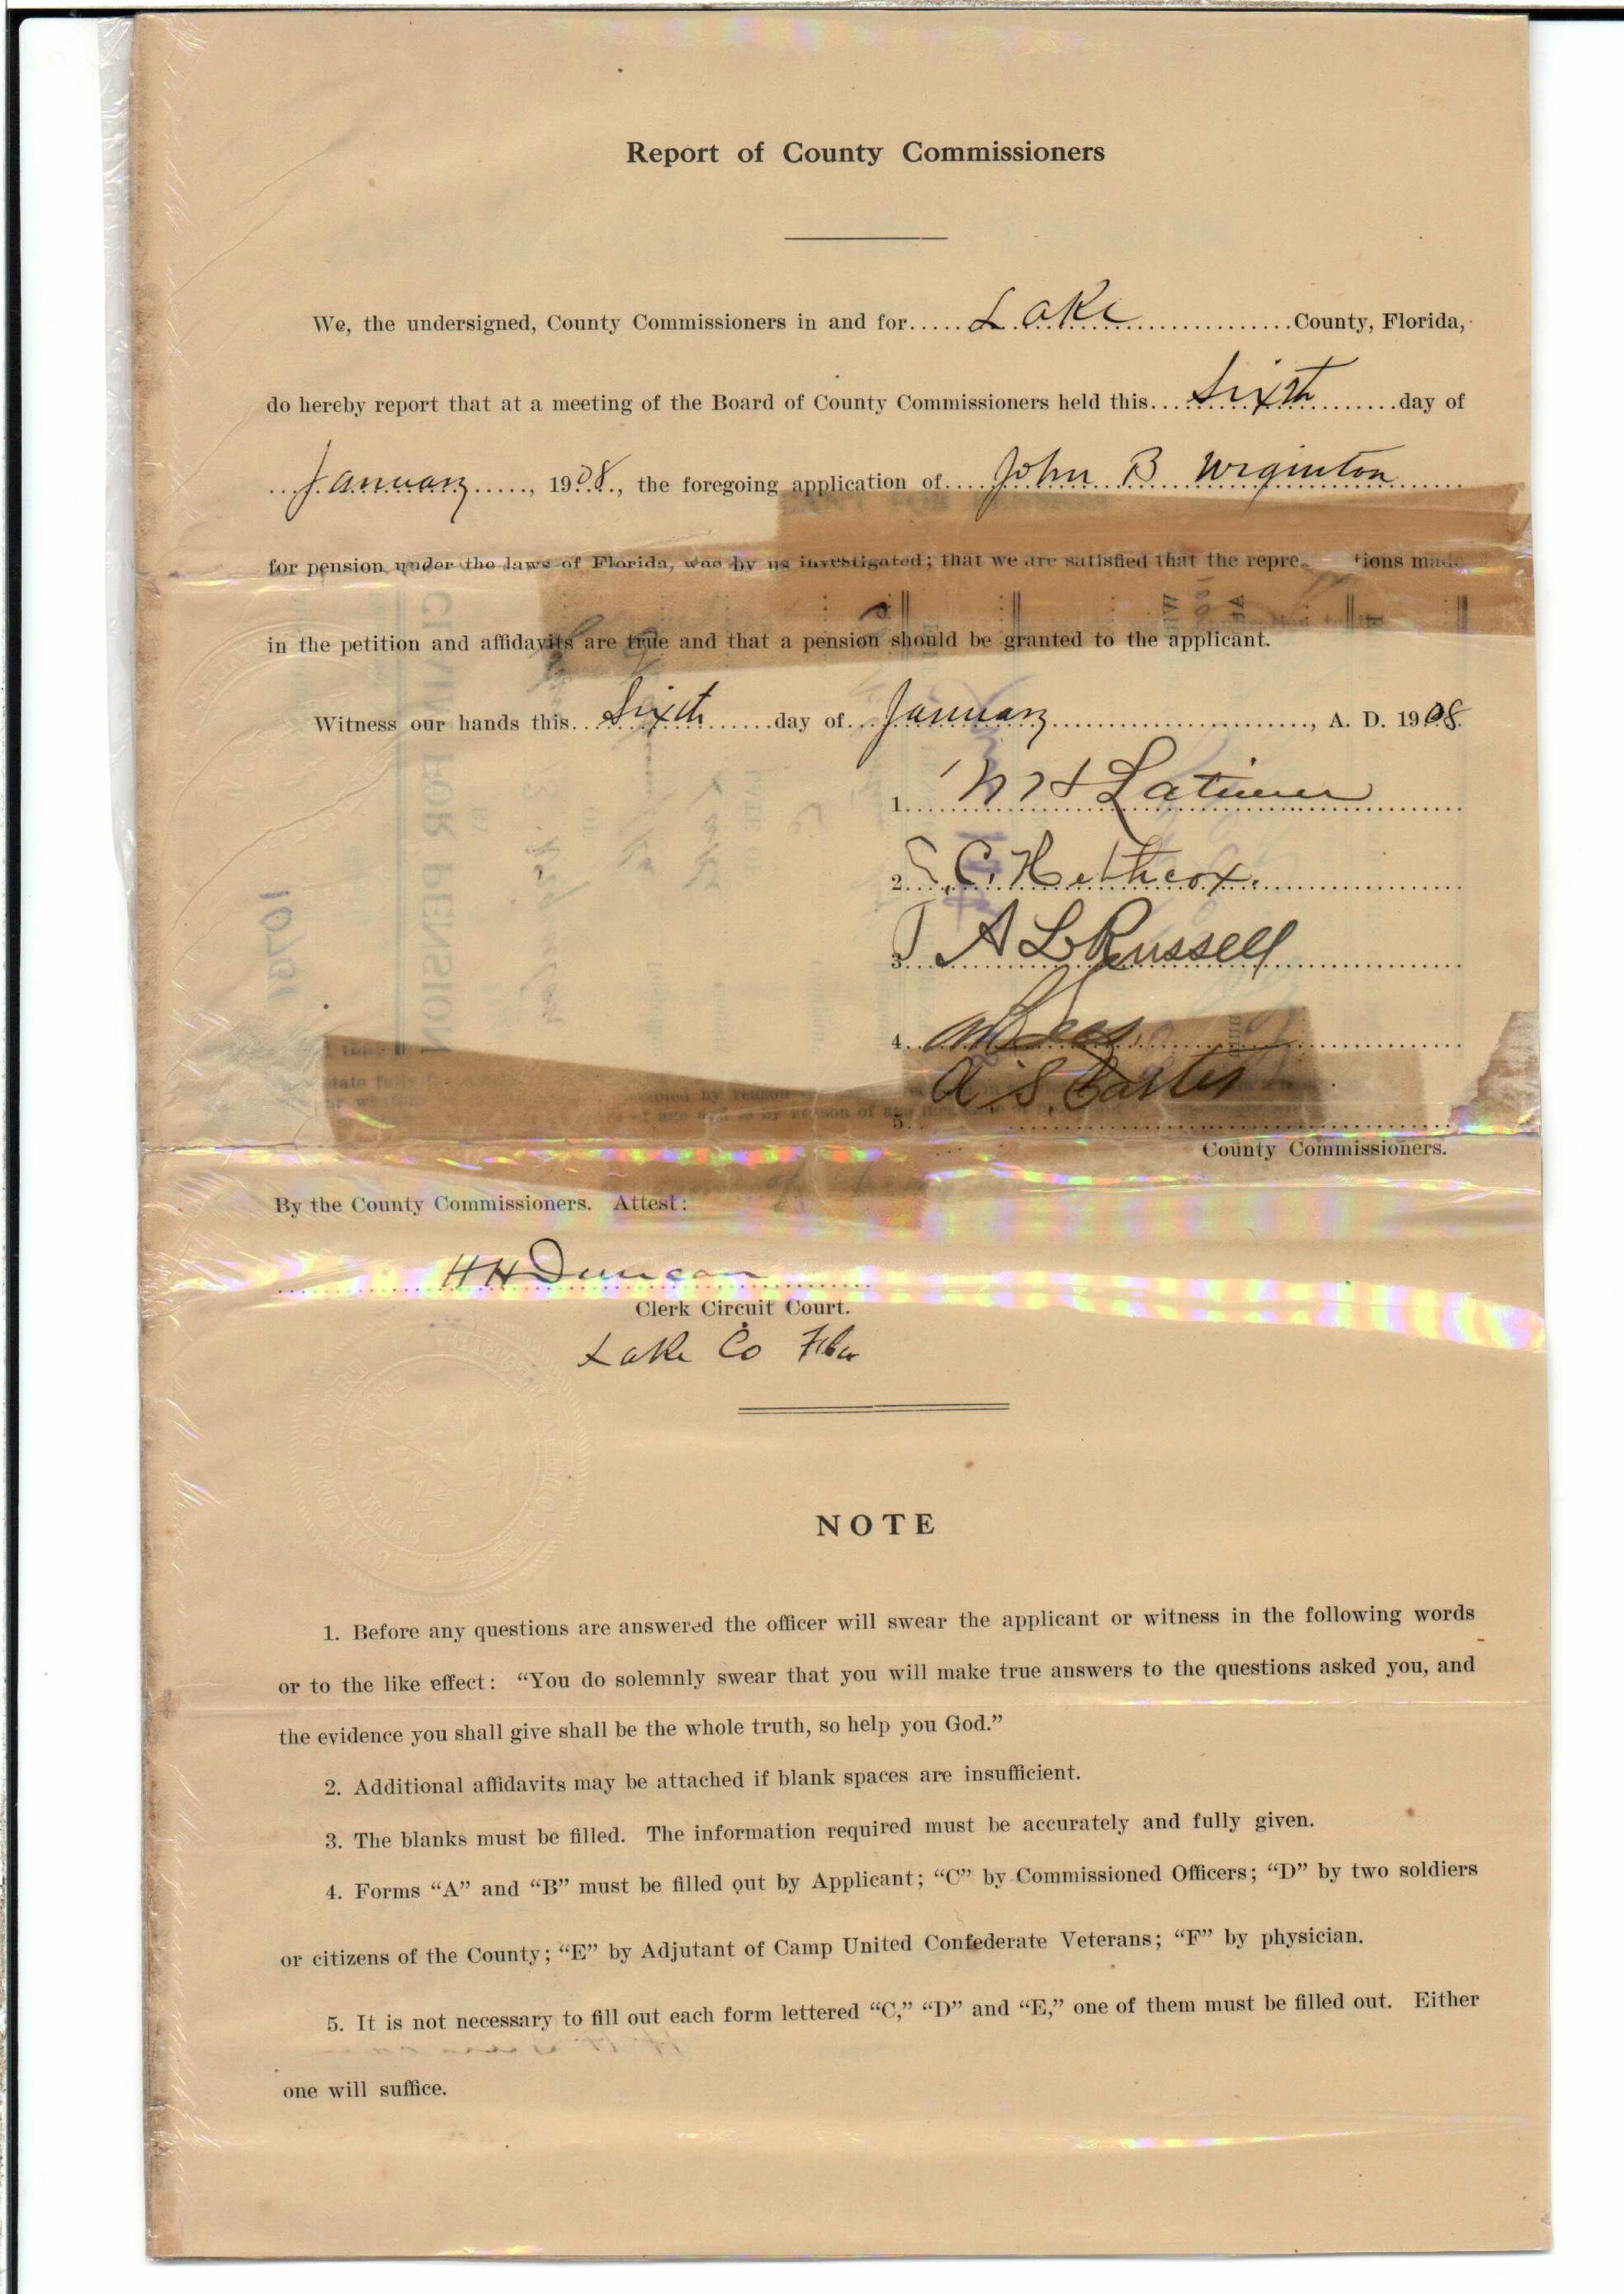 Report of County Commissioners
We, the undersigned, County Commissioners in and for..... Lake ..................County, Florida,
do hereby report that at a meeting of the Board of County Commissioners held this... Sixth ........day of
...January....., 1908., the foregoing application of.... John B Wiginton ......
for pension under the laws of Florida, was by us investigated; that we are satisfied that the repre tions made
in the petition and affidavits are true and that a pension should be granted to the applicant.
Witness our hands this... Sixth ......day of... January ........................, A. D. 1908.
1. Latimer
2. C. Hethcox.
3. A L Russell
4.
A S. Carter
5.
County Commissioners.
By the County Commissioners. Attest:
H H Duncan
Clerk Circuit Court.
Lake Co Fla
NOTE
1. Before any questions are answered the officer will swear the applicant or witness in the following words
or to the like effect: “You do solemnly swear that you will make true answers to the questions asked you, and
the evidence you shall give shall be the whole truth, so help you God.”
2. Additional affidavits may be attached if blank spaces are insufficient.
3. The blanks must be filled. The information required must be accurately and fully given.
4. Forms “A” and “B” must be filled out by Applicant; “C” by Commissioned Officers; “D” by two soldiers
or citizens of the County; “E” by Adjutant of Camp United Confederate Veterans; “F” by physician.
5. It is not necessary to fill out each form lettered “C,” “D” and “E,” one of them must be filled out. Either
one will suffice.